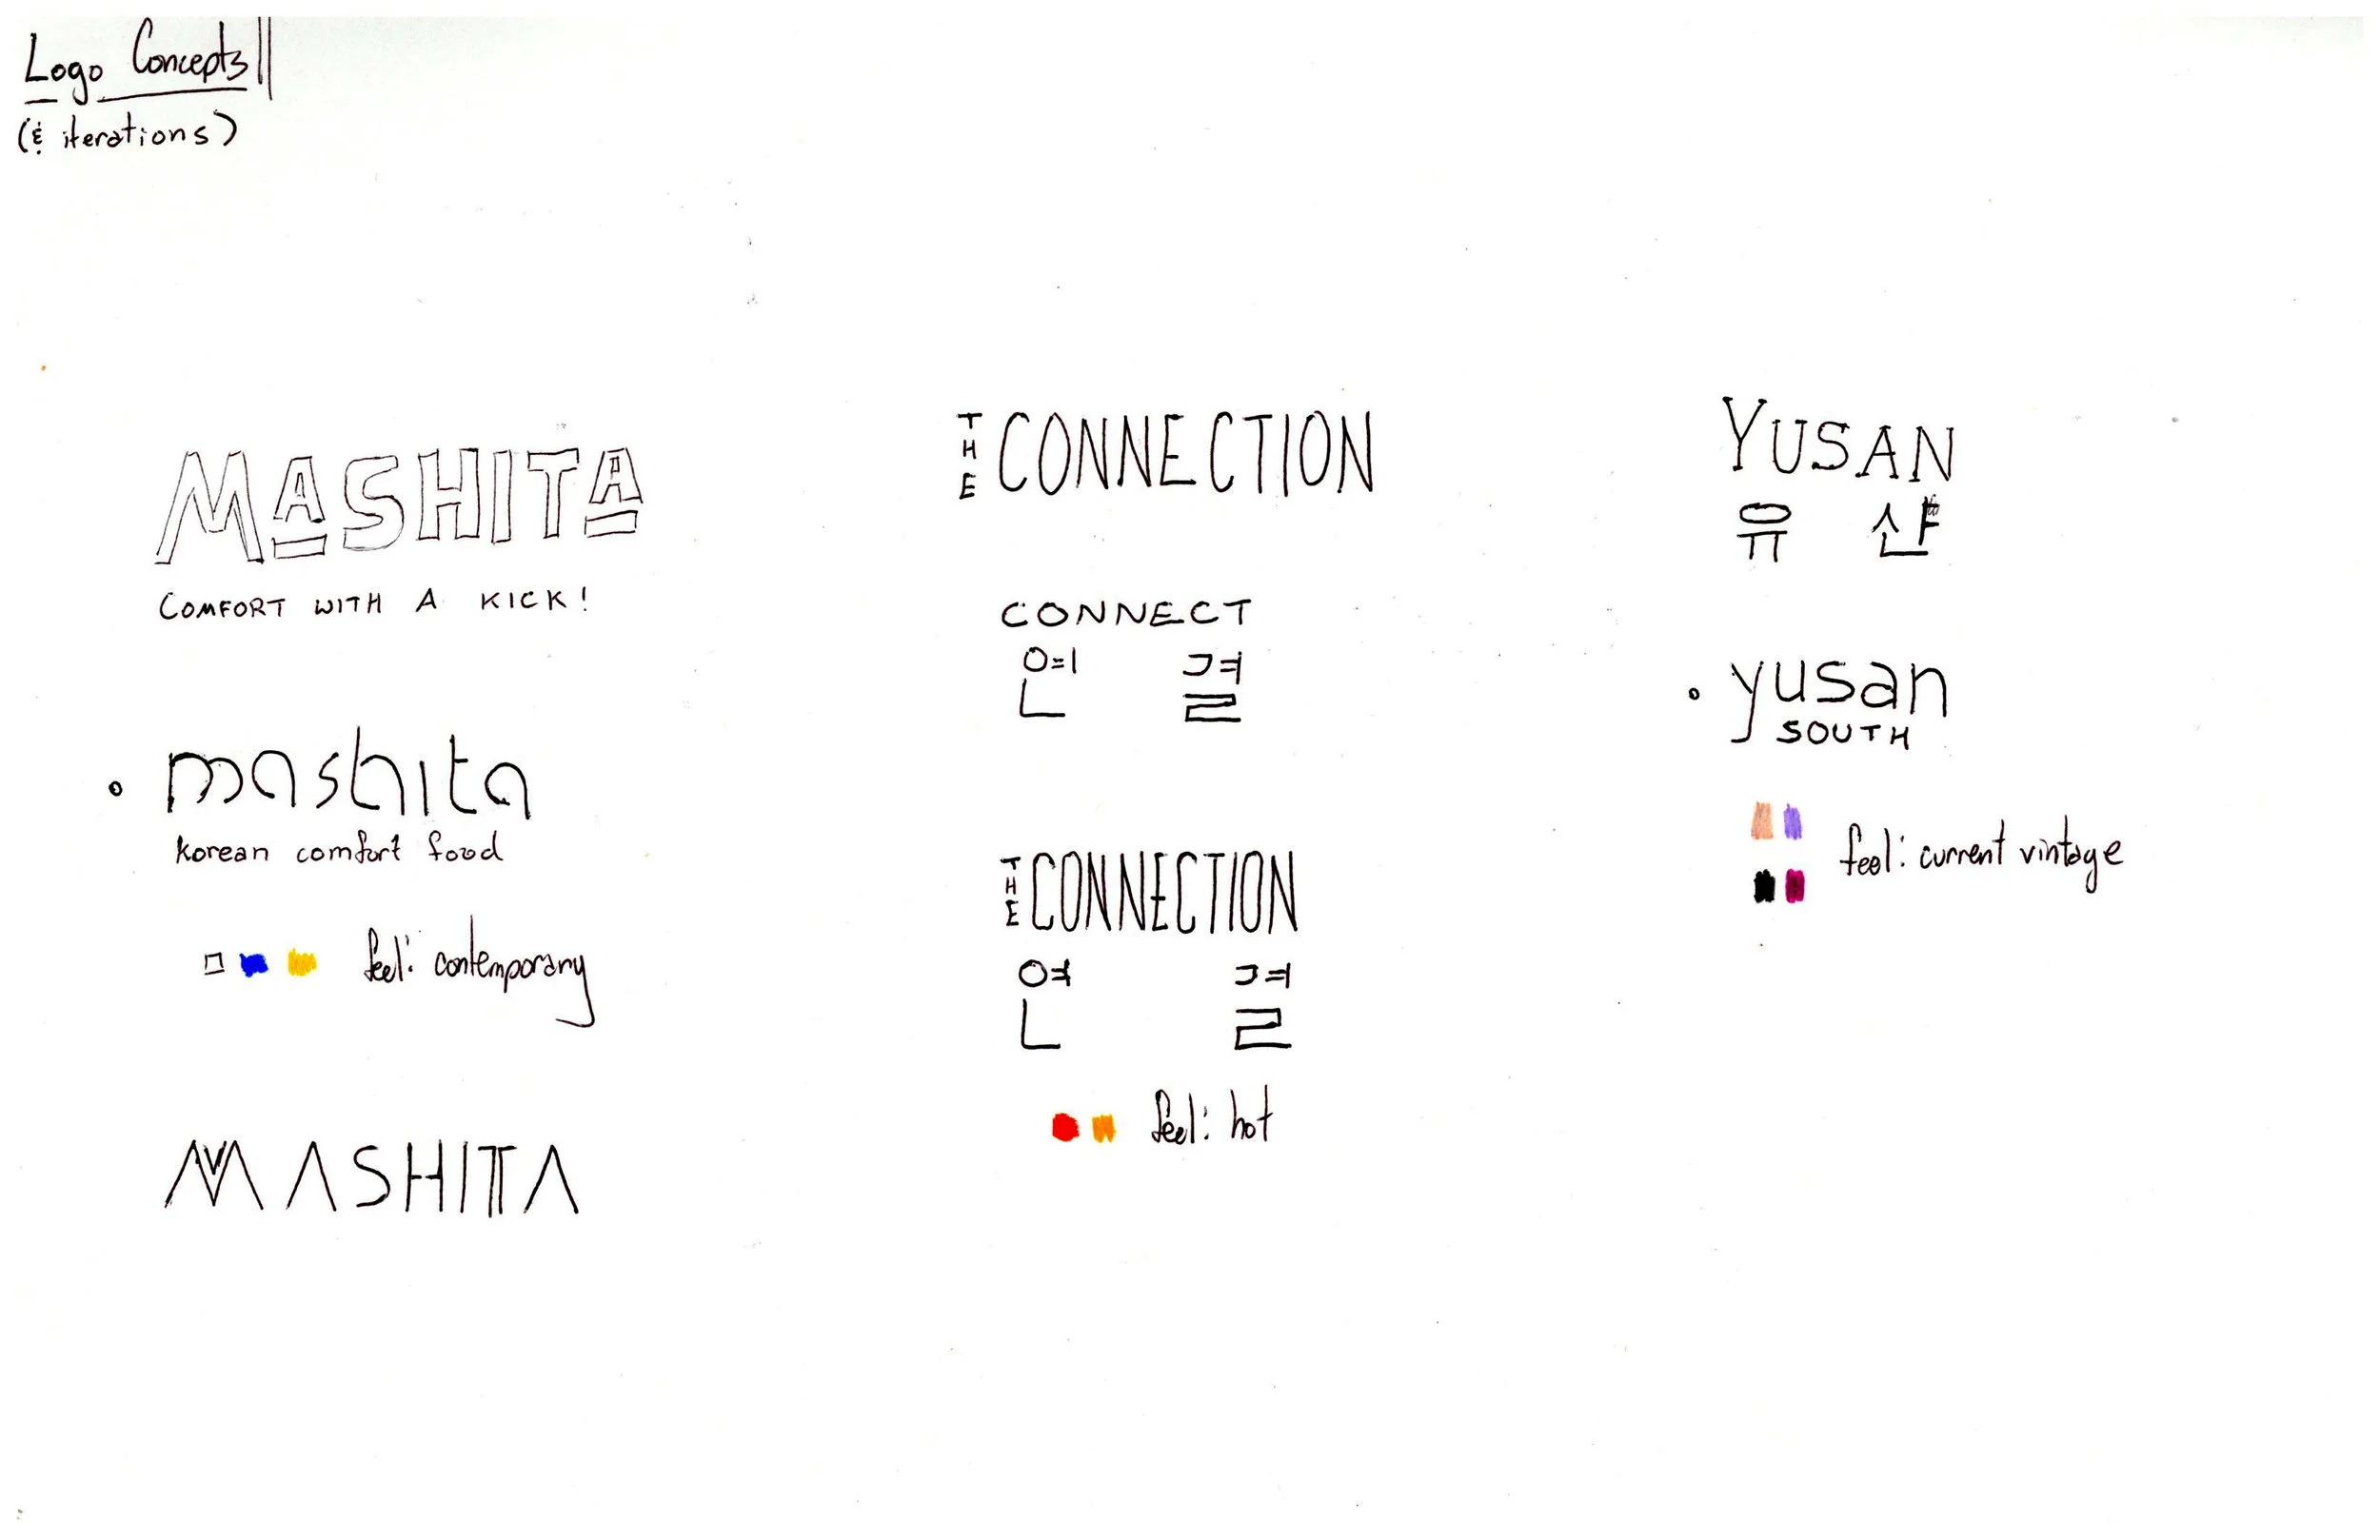 Logo Concepts
(& iterations)
MASHITA
COMFORT WITH A KICK!
mashita
korean comfort food
feel: contemporary
MASHITA
THE CONNECTION
CONNECT
연 결
THE CONNECTION
연 결
feel: hot
YUSAN
유 산
yusan
SOUTH
feel: current vintage